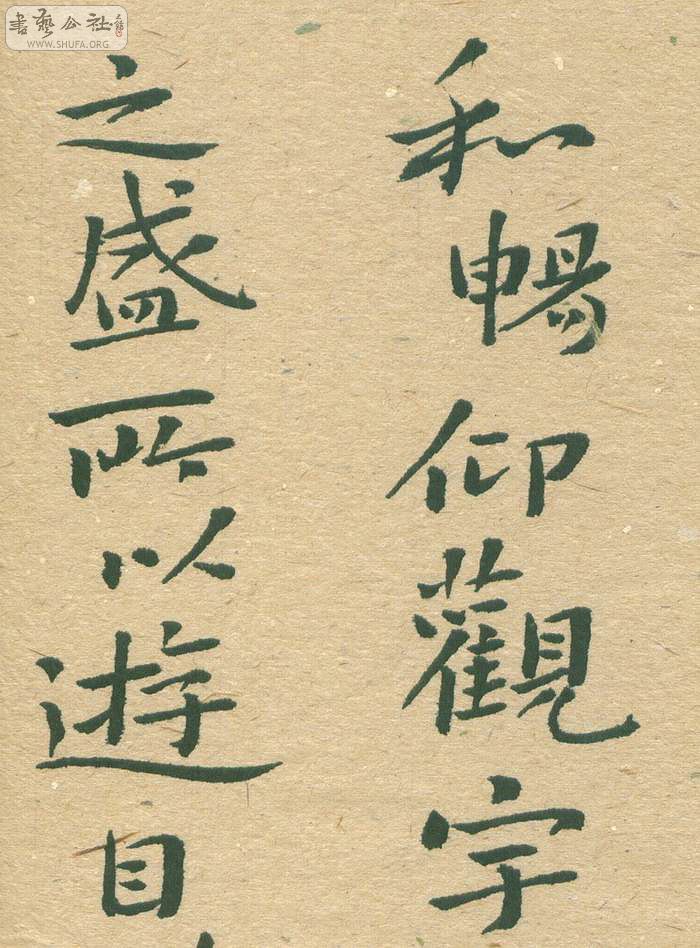 和暢仰觀宇
之盛所以遊目
書藝公社
WWW.SHUFA.ORG